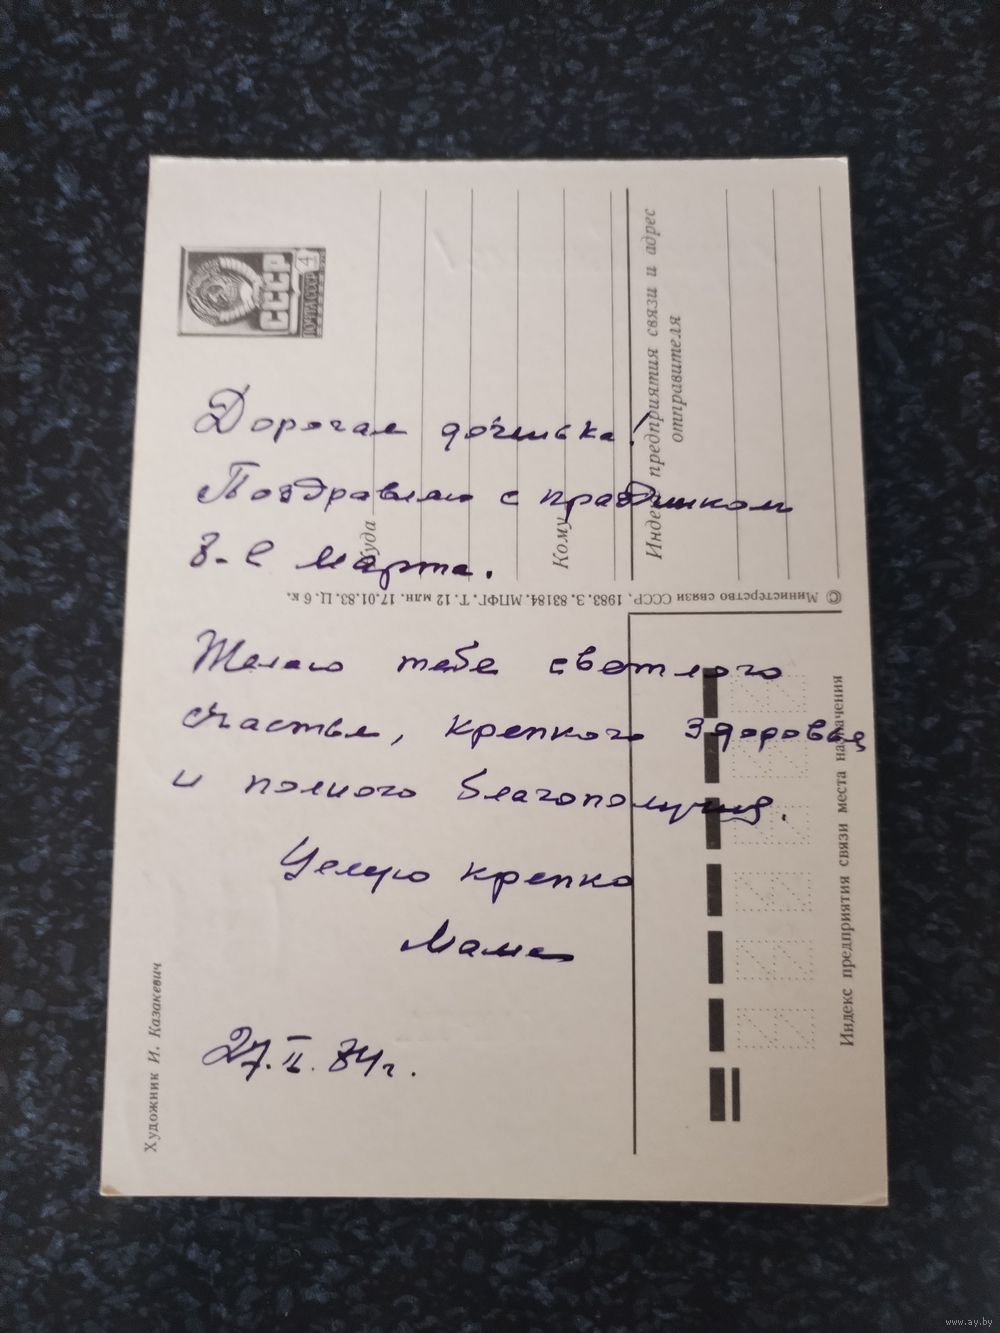 Дорогая доченька!
Поздравляю с праздником
8-е Марта.
Желаю тебе светлого
счастья, крепкого здоровья
и полного благополучия.
Целую крепко
Мама
27.II.84г.
ПОЧТА СССР 4
СССР
Куда
Кому
Индекс предприятия связи и адрес
отправителя
© Министерство связи СССР. 1983. З. 83184. МПФГ. Т. 12 млн. 17.01.83. Ц. 6 к.
Индекс предприятия связи места назначения
Художник И. Казакевич
www.ay.by